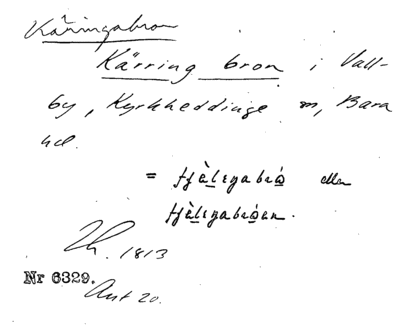 Kärringabron
Kärring bron i Vall-
by, Kyrkheddinge sn, Bara
hd.
= tjèlıŋabró eller
tjèlıŋabróen.
1813
Nr 6329.
Ant 20.